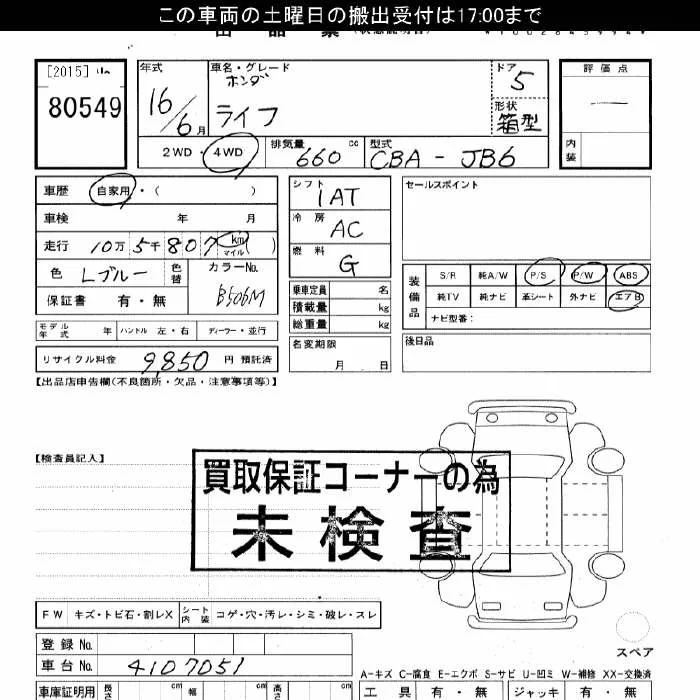 この車両の土曜日の搬出受付は17:00まで
[2015]
80549
年式
16/6月
車名・グレード
ホンダ
ライフ
ドア
5
形状
箱型
評価点
内装
2WD・4WD
排気量
660 cc
型式
CBA - JB6
車歴 自家用・( )
車検 年 月
走行 10万5千807 km マイル ( )
色 Lブルー 色替
カラーNo.
B506M
保証書 有・無
シフト
IAT
冷房
AC
燃料
G
セールスポイント
装備品
S/R 純A/W P/S P/W ABS
純TV 純ナビ 革シート 外ナビ エアB
ナビ型番:
乗車定員 名
積載量 kg
総重量 kg
モデル年式 年 ハンドル 左・右 ディーラー・並行
名変期限
月 日
後日品
リサイクル料金 9,850 円 預託済
【出品店申告欄(不良箇所・欠品・注意事項等)】
【検査員記入】
買取保証コーナーの為
未検査
FW キズ・トビ石・割レX シート内装 コゲ・穴・汚レ・シミ・破レ・スレ
スペア
登録No.
車台No. 4107051
A-キズ C-腐食 E-エクボ S-サビ U-凹ミ W-補修 XX-交換済
車庫証明用 長さ cm 幅 cm 高さ cm
工具 有・無 ジャッキ 有・無